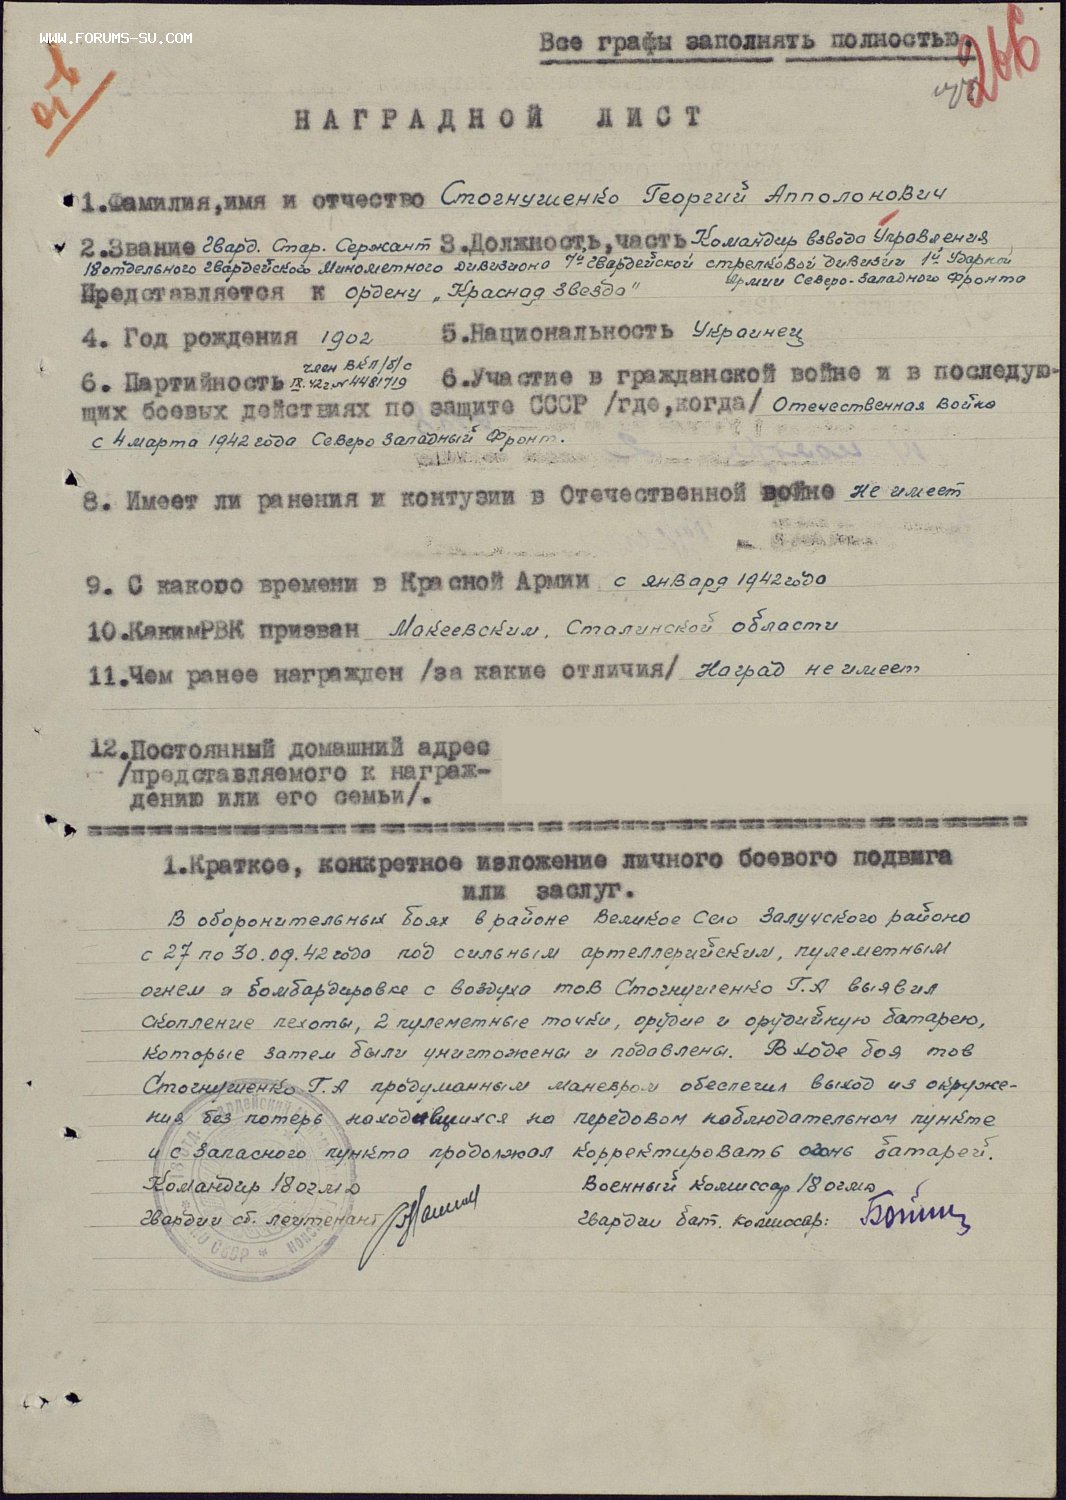 WWW.FORUMS-SU.COM
Все графы заполнять полностью.
266
НАГРАДНОЙ ЛИСТ
1.Фамилия,имя и отчество Стогнушенко Георгий Апполонович
2.Звание Гвард. Стар. Сержант 3.Должность,часть Командир взвода Управления
18 отдельного Гвардейского Минометного дивизиона 7й Гвардейской стрелковой дивизии 1й Ударной
Армии Северо-Западного Фронта
Представляется к ордену „Красная звезда"
4. Год рождения 1902 5.Национальность Украинец
член ВКП/б/ с
6. Партийность IX.42г. № 4481719 6.Участие в гражданской войне и в последую-
щих боевых действиях по защите СССР /где,когда/ Отечественная война
с 4 марта 1942 года Северо Западный Фронт.
8. Имеет ли ранения и контузии в Отечественной войне не имеет
9. С какого времени в Красной Армии с января 1942 года
10.КакимРВК призван Макеевским, Сталинской области
11.Чем ранее награжден /за какие отличия/ Наград не имеет
12.Постоянный домашний адрес
/представляемого к награж-
дению или его семьи/.
1.Краткое, конкретное изложение личного боевого подвига
или заслуг.
В оборонительных боях в районе Великое Село Залучского района
с 27 по 30.09.42 года под сильным артеллерийским, пулеметным
огнем и бомбардировке с воздуха тов Стогнушенко Г.А выявил
скопление пехоты, 2 пулеметные точки, орудие и орудийную батарею,
которые затем были уничтожены и подавлены. В ходе боя тов
Стогнушенко Г.А продуманным маневром обеспечил выход из окруже-
ния без потерь находившихся на передовом наблюдательном пункте
и с запасного пункта продолжал корректировать огонь батарей.
Командир 18 огмд Военный комиссар 18 огмд
Гвардии ст. лейтенант Гвардии бат. комиссар: